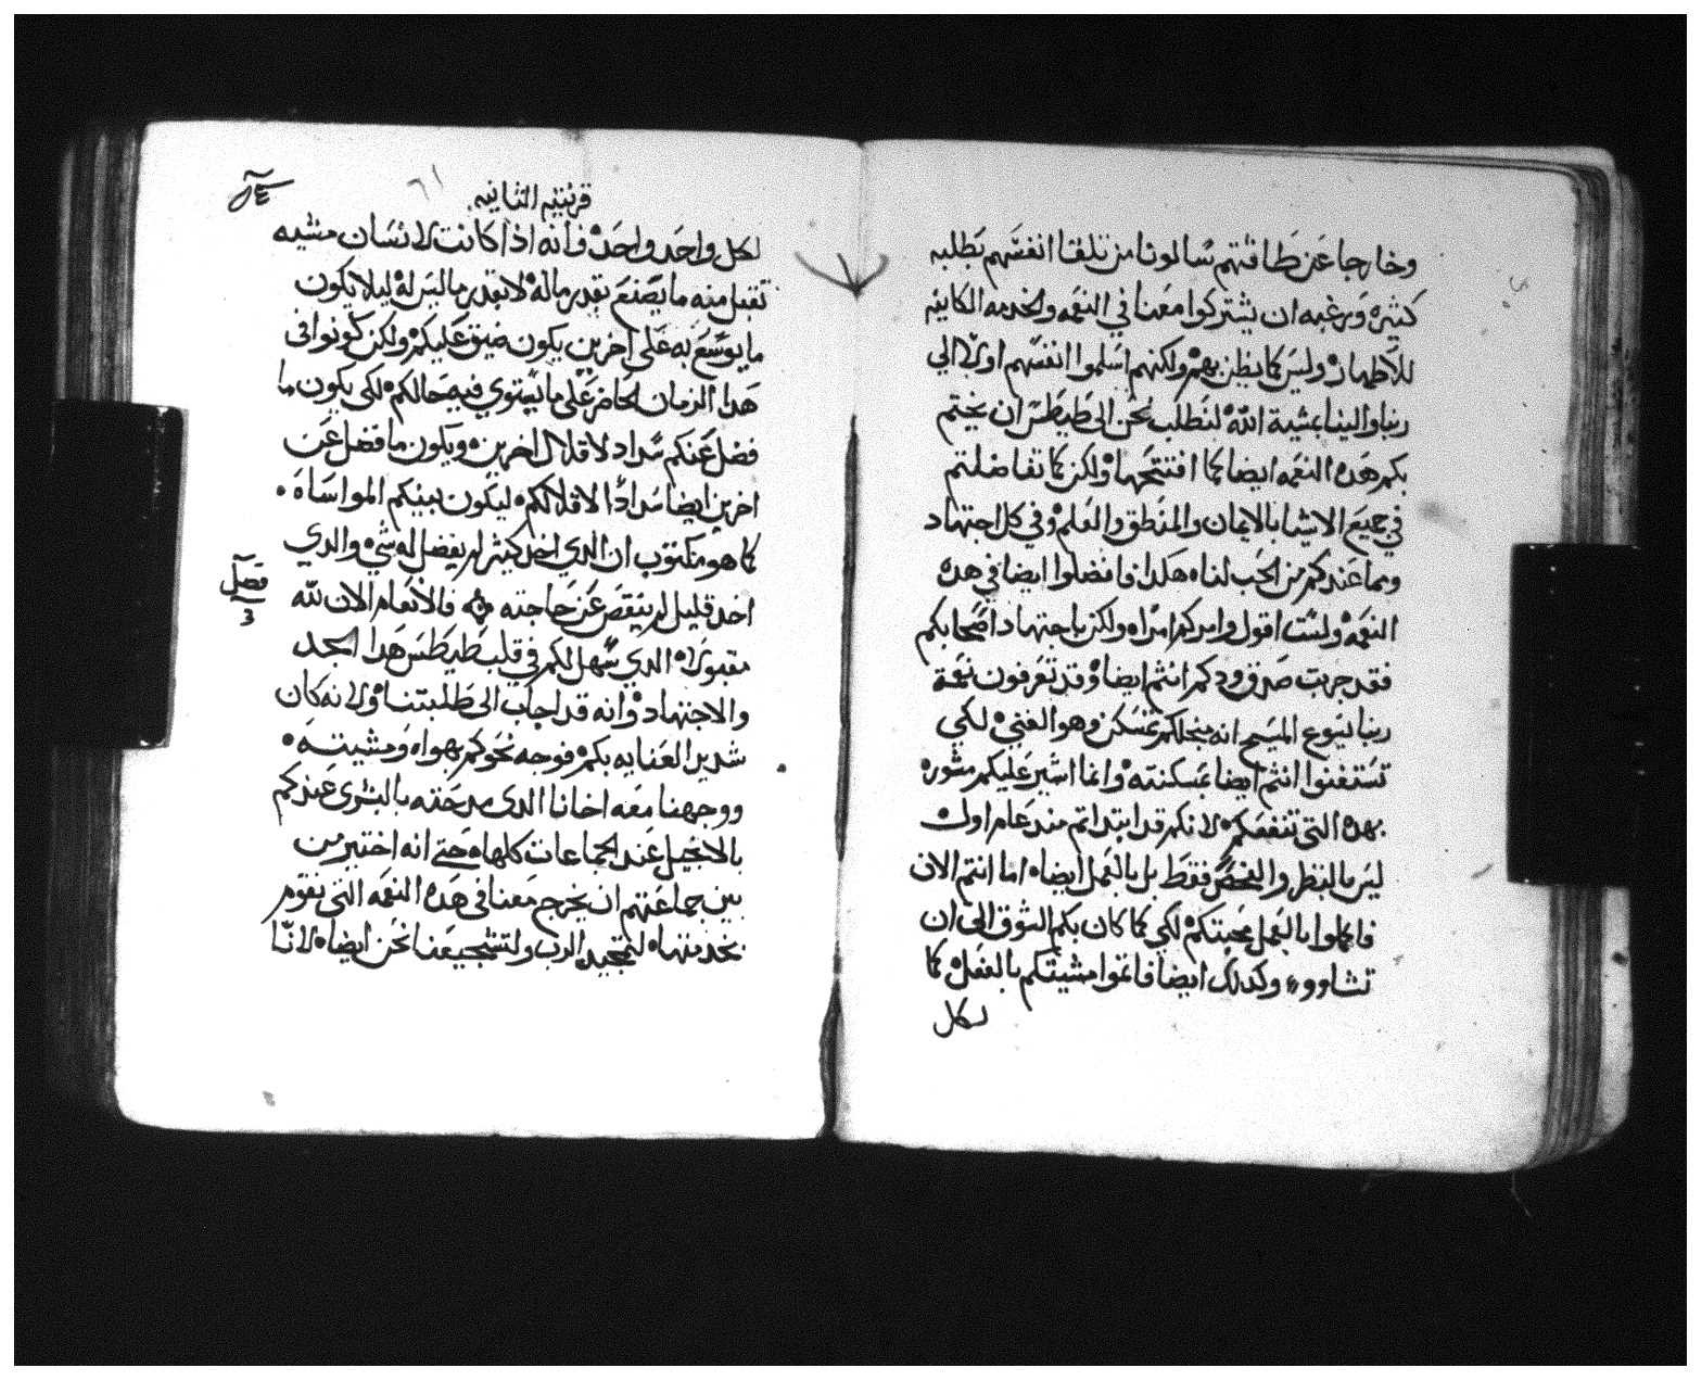 وخارجا عن طاقتهم سالونا من تلقا انفسهم بطلبه
كثيره ورغبه ان يشتركوا معنا في النعمه والخدمه الكاينه
للاطهار وليس كما يظن بهم ولكنهم اسلموا انفسهم اولا الي
ربنا والينا بمشية الله لنطلب نحن الى طيطس ان يختم
بكم هده النعمه ايضا كما افتتحها ولكن كما تفاضلتم
في جميع الاشيا بالايمان والمنطق والعلم وفي كل اجتهاد
ومما عندكم من الحب لنا هكدا فافضلوا ايضا في هده
النعمه ولست اقول وامركم امرا ولكن باجتهاد اصحابكم
فقد جربت صدق ودكم انتم ايضا وقد تعرفون نعمة
ربنا يسوع المسيح انه من اجلكم تمسكن وهو الغني لكي
تستغنوا انتم ايضا بمسكنته وانما اشير عليكم مشوره
بهده التي تنفعكم لانكم قد ابتداتم مند عام اول
ليس بالنظر والفحص فقط بل بالعمل ايضا اما انتم الان
فاكملوا بالعمل محبتكم لكي كما كان بكم الشوق الى ان
تشاوو وكدلك ايضا فاتموا مشيتكم بالفعل كما
لكل
قرنتيه الثانيه
٦١
لكل واحد واحد فانه اذا كانت لانسان مشيه
تقبل منه ما يصنع بقدر ماله لا بقدر ما ليس له ليلا يكون
ما يوسع به على اخرين يكون ضيق عليكم ولكن كونوا في
هدا الزمان الحاضر على ما يستوي فيه حالكم لكي يكون ما
فضل عنكم سداد لاقلال اخرين ويكون ما فضل عن
اخرين ايضا سدادا لاقلالكم ليكون بينكم المواساه
كما هو مكتوب ان الدي اخد كثير لم يفضل له شي والدي
اخد قليل لم ينقص عن حاجته فالانعام الان لله
فصل
3
مقبولا الدي سهل لكم في قلب طيطس هدا الجد
والاجتهاد وانه قد اجاب الى طلبتنا ولانه كان
شديد العنايه بكم فوجه نحوكم بهواه ومشيته
ووجهنا معه اخانا الدى مدحته بالبشرى عندكم
بالانجيل عند الجماعات كلها حتى انه اختير من
بين جماعتهم ان يخرج معنا في هده النعمه التي نقوم
بخدمتها لتمجيد الرب ولتشجيعنا نحن ايضا لانا